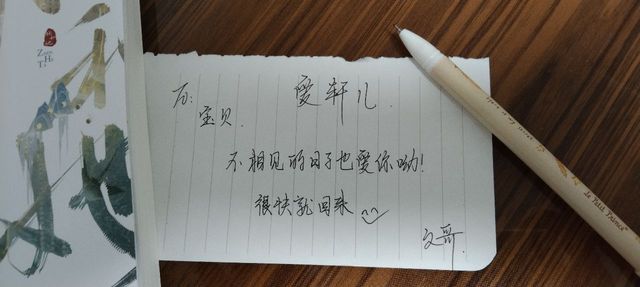 To: 爱轩儿.
宝贝.
不相见的日子也爱你呦!
很快就回来
文哥.
Le Petit Prince